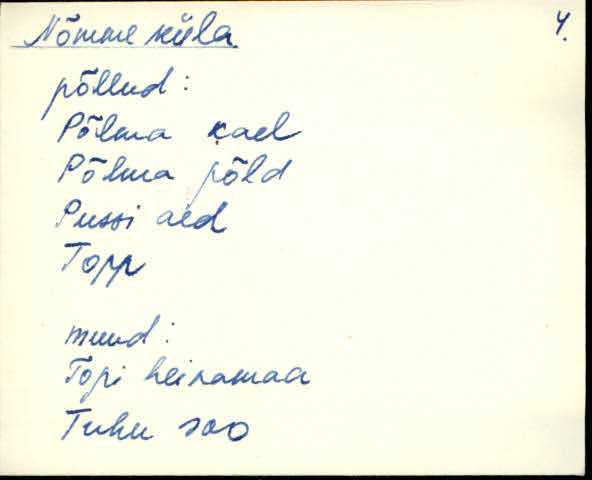 Nõmme küla 4.
põllud:
Põlma kael
Põlma põld
Pussi aed
Topp
muud:
Topi heinamaa
Tuhu soo